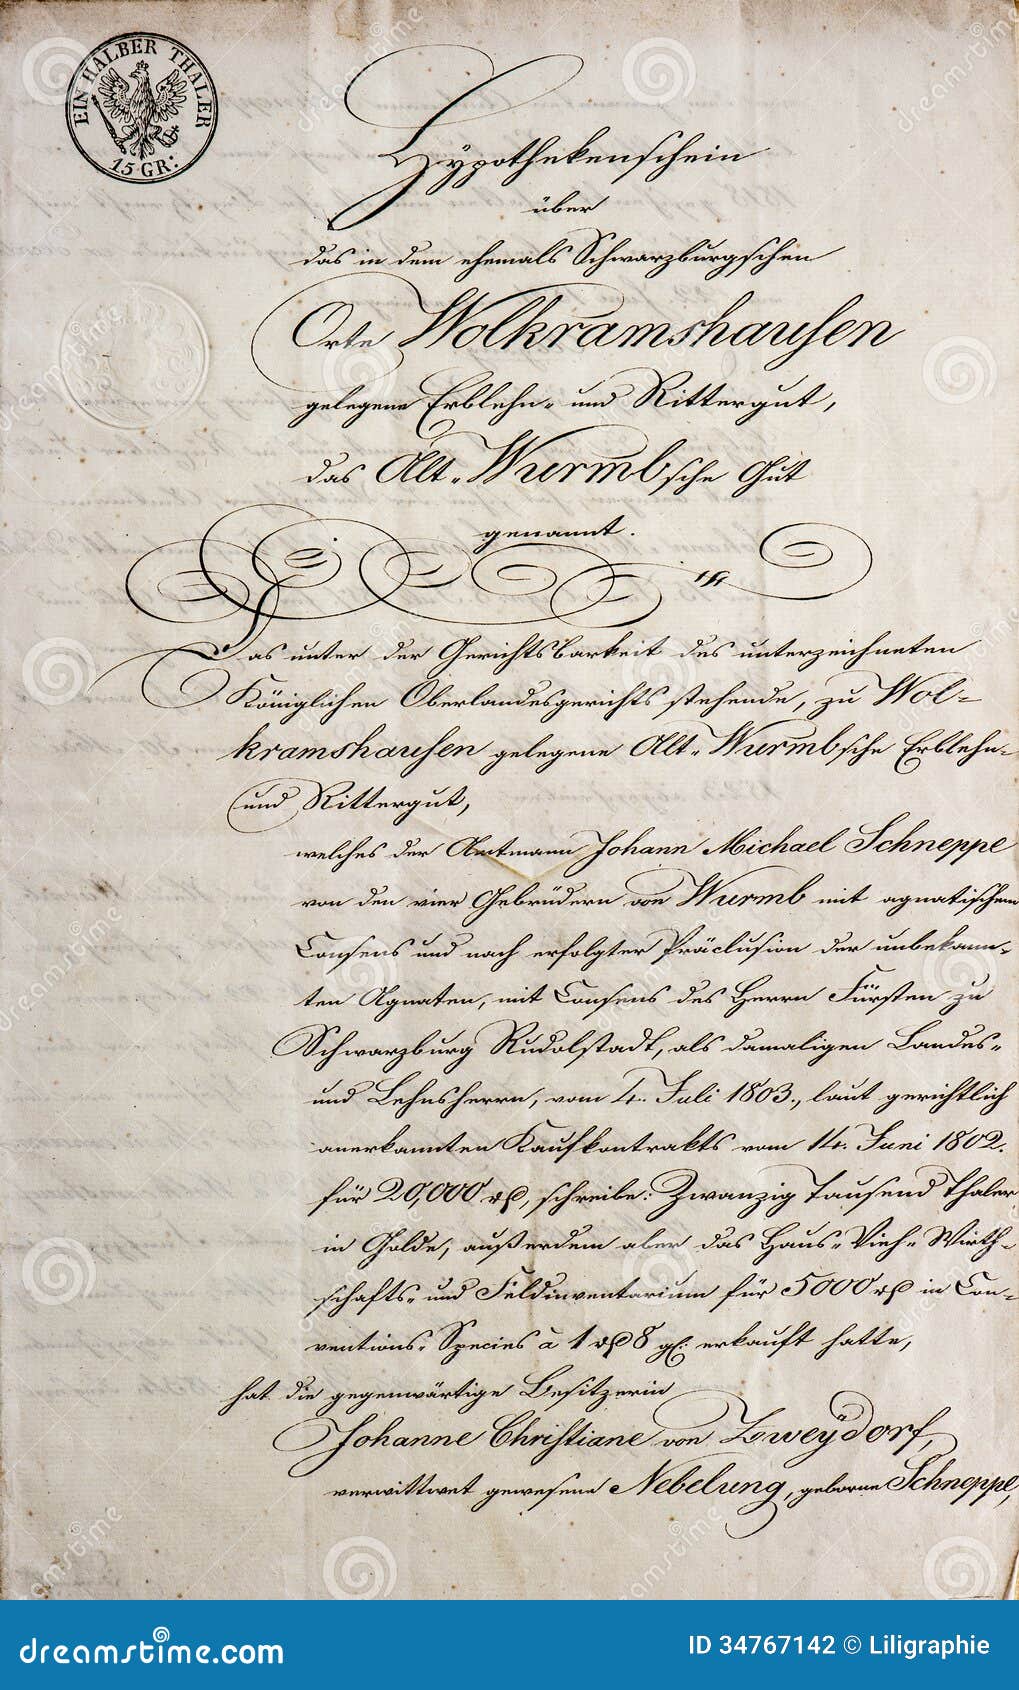 EIN HALBER THALER
15 GR:
Hypothekenschein
über
das in dem ehemals Schwarzburgschen
Orte Wolkramshausen
gelegene Erblehn- und Rittergut,
das Alt-Wurmbsche Gut
genannt.
Das unter der Gerichtsbarkeit des unterzeichneten
Königlichen Oberlandesgerichts stehende, zu Wol-
kramshausen gelegene Alt-Wurmbsche Erblehn-
und Rittergut,
welches der Amtmann Johann Michael Schneppe
von den vier Gebrüdern von Wurmb mit agnatischem
Consens und nach erfolgter Präclusion der unbekann-
ten Agnaten, mit Consens des Herrn Fürsten zu
Schwarzburg Rudolstadt, als damaligen Landes-
und Lehnsherrn, vom 4. Juli 1803., laut gerichtlich
anerkannten Kaufkontrakts vom 14. Juni 1802.
für 20,000 rthl, schreibe: Zwanzig Tausend Thaler
in Golde, außerdem aber das Haus- Vieh- Wirth-
schafts- und Feldinventarium für 5000 rthl in Con-
ventions- Species à 1 rthl 8 gl. erkauft hatte,
hat die gegenwärtige Besitzerin
Johanne Christiane von Zweydorf,
verwittwet gewesene Nebelung, geborne Schneppe,
dreamstime
ID 34767142 © Liligraphie